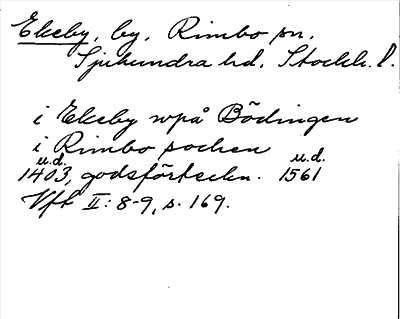 Ekeby, by, Rimbo sn.
Sjuhundra hd, Stockh. l.
i Ekeby uppå Bödingen
i Rimbo sochen
u.d. u.d.
1403, godsförteckn. 1561
Vft II: 8-9, s. 169.